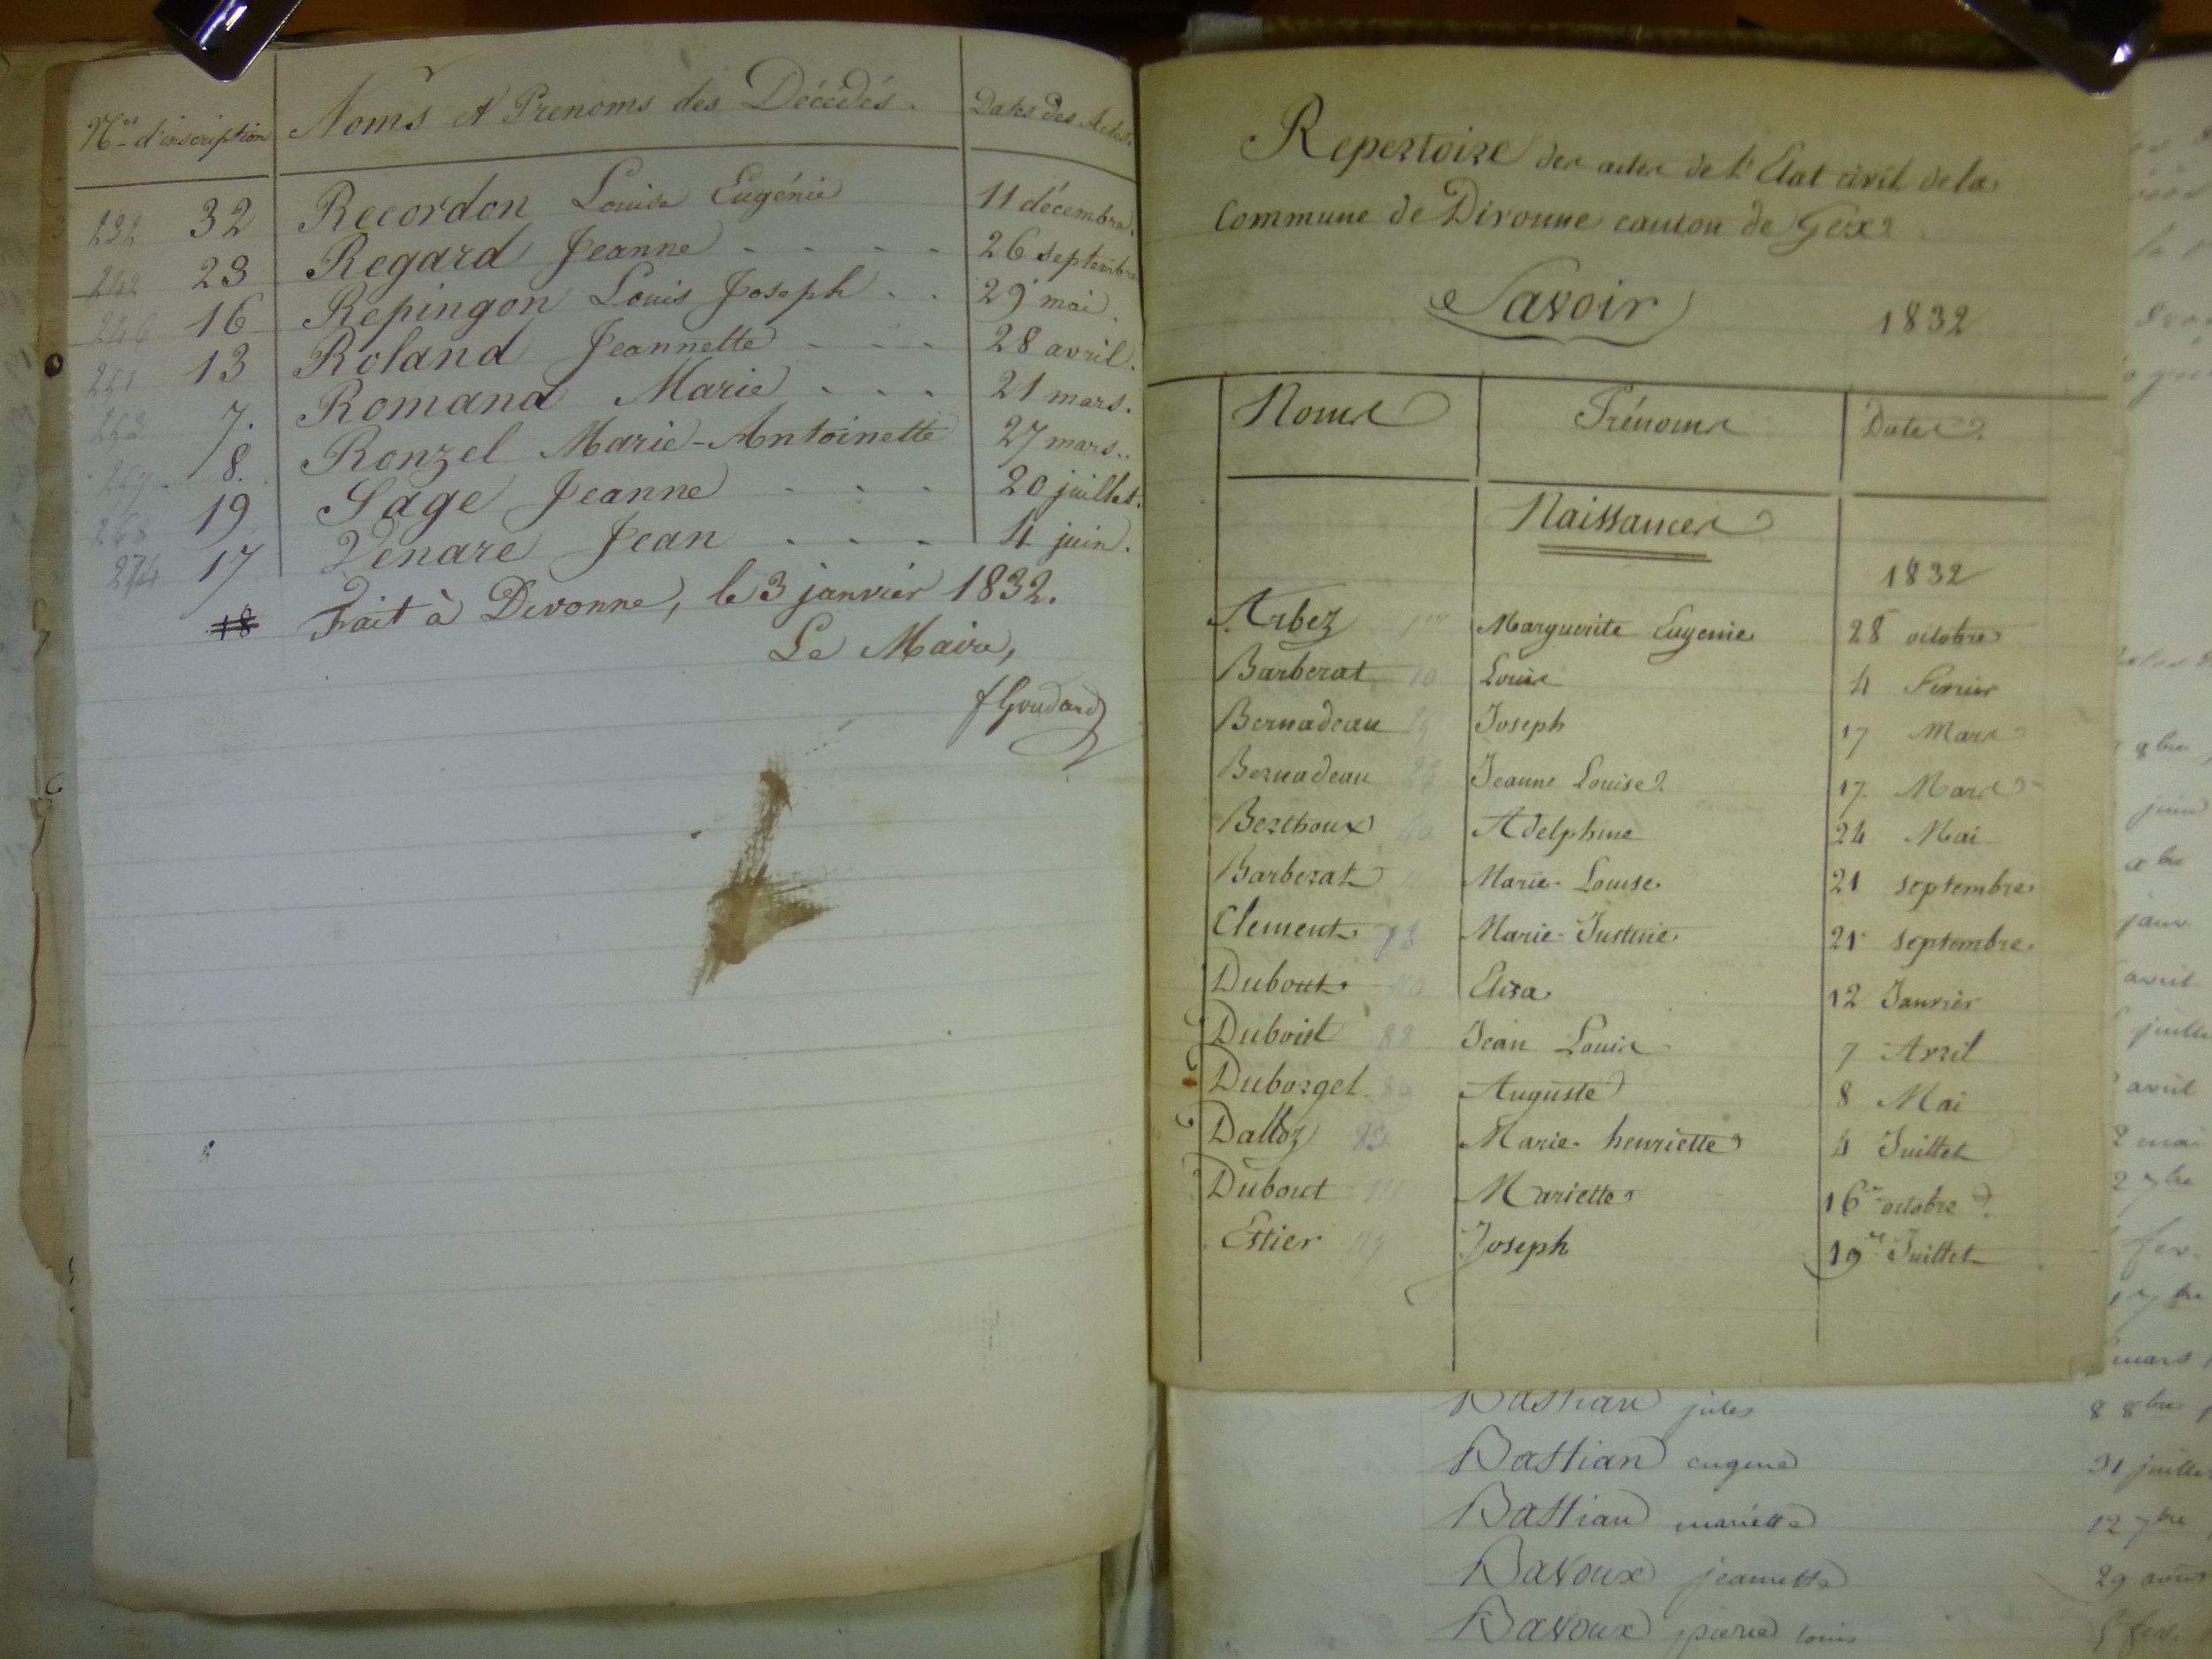 Nos d'inscription Noms et Prenoms des Décédés. Dates des Actes.
232 32 Recordon Louise Eugénie 11 décembre.
242 23 Regard Jeanne 26 septembre
246 16 Repingon Louis Joseph 29 mai.
251 13 Roland Jeannette 28 avril.
7. Romand Marie 21 mars.
8. Ronzel Marie-Antoinette 27 mars.
19 Sage Jeanne 20 juillet.
274 17 Venare Jean 4 juin.
18 Fait à Divonne, le 3 janvier 1832.
Le Maire,
f Goudard
Repertoire des actes de l'Etat civil de la
Commune de Divonne canton de Gex
Savoir 1832
Noms Prénoms Dates
Naissances
1832
Arbez Marguerite Eugenie 28 octobre
Barberat 10 Louis 4 Fevrier
Bernadeau Joseph 17 Mars
Bernadeau Jeanne Louise 17 Mars
Berthoux Adelphine 24 Mai
Barberat Marie-Louise 21 septembre
Clement 78 Marie-Justine 21 septembre
Dubout Elisa 12 Janvier
Duboist 88 Jean Louis 7 Avril
Duborgel Auguste 8 Mai
Dalloz Marie-henriette 4 Juillet
Dubout Mariette 16 octobre
Estier Joseph 19 Juillet
Bastian jules 8 8bre
Bastian eugene 31 juillet
Bastian mariette 12 7bre
Bavoux jeannette 29
Bavoux pierre louis 5 fev.
8bre
juin
janv
avril
juille
avril
2 mai
2 7bre
fev.
mars